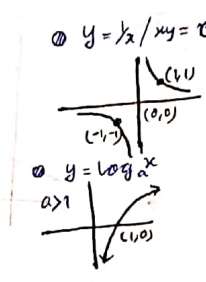 y = 1/x / xy =
(1,1)
(0,0)
(-1,-1)
y = log a^x
a>1
(1,0)